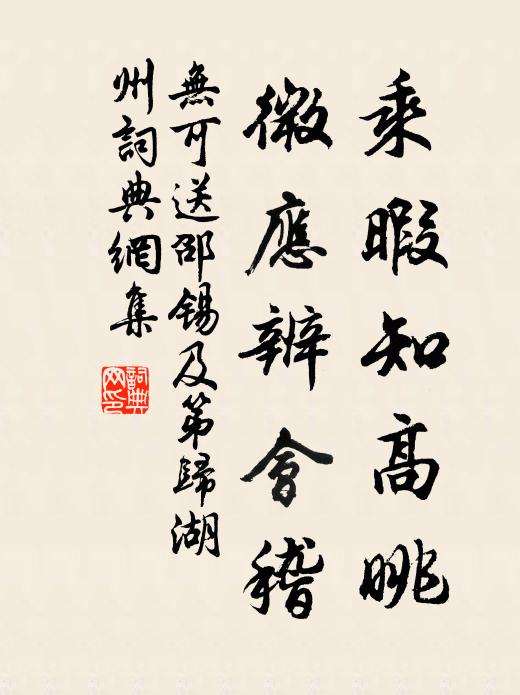 乘暇知高眺
微應辨會稽
無可送邵锡及第歸湖
州詞典網集
詞典網印